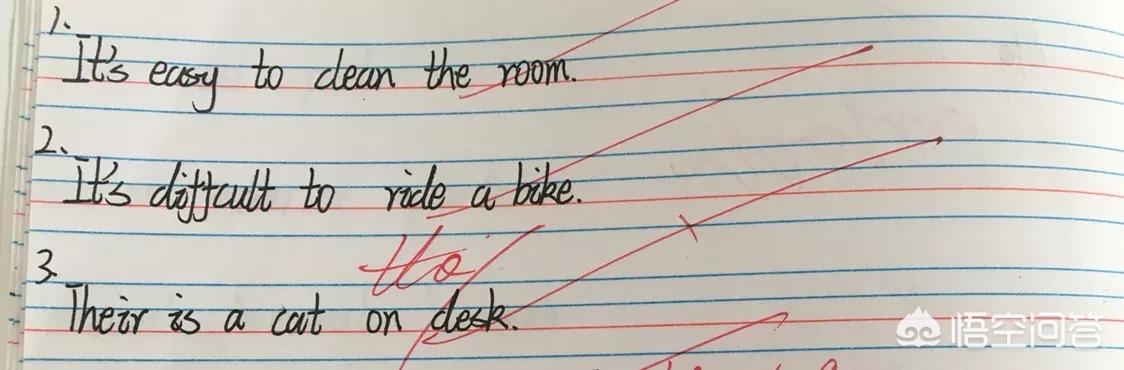 1.
It's easy to clean the room.
2.
It's diffcult to ride a bike.
3.
Their is a cat on desk.
悟空问答